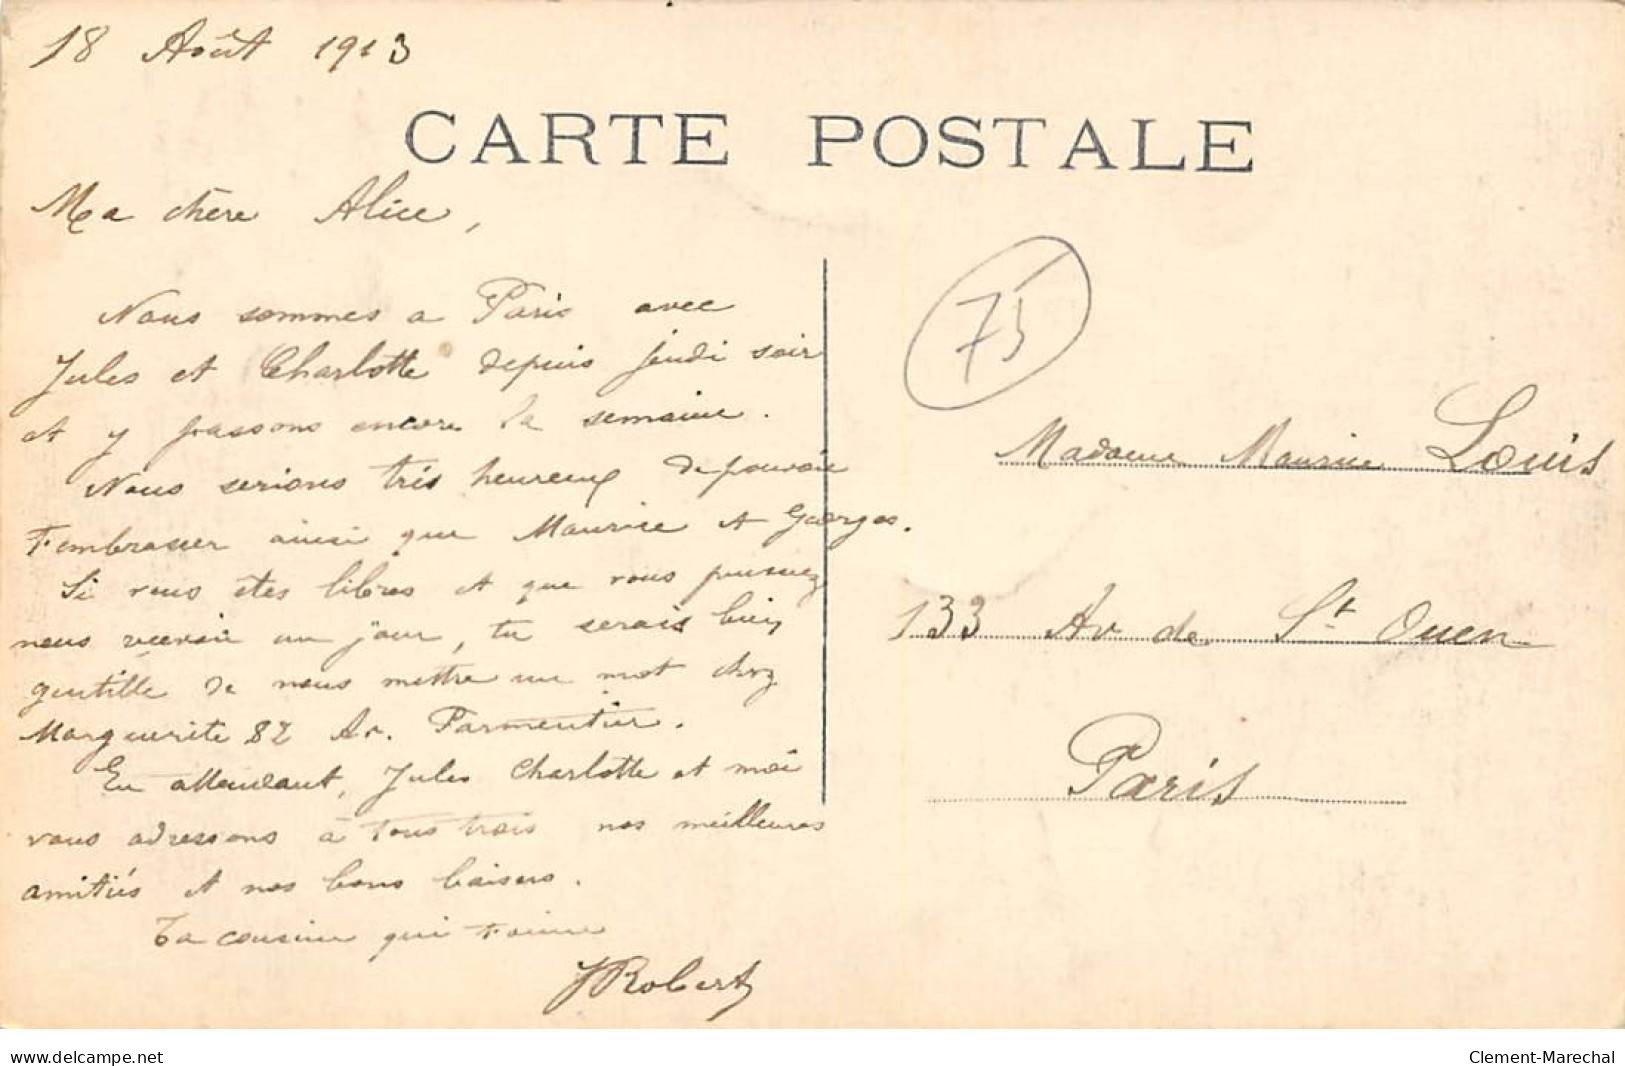 18 Août 1913
CARTE POSTALE
Ma chère Alice,
Nous sommes a Paris avec
Jules et Charlotte depuis jeudi soir
et y passons encore la semaine.
Nous serions très heureux de pouvoir
t'embrasser ainsi que Maurice et Georges.
Si vous êtes libres et que vous puissiez
nous recevoir un jour, tu serais bien
gentille de nous mettre un mot chez
Marguerite 82 Av. Parmentier.
En attendant, Jules Charlotte et moi
vous adressons à tous trois nos meilleures
amitiés et nos bons baisers.
Ta cousine qui t'aime
JRobert
75
Madame Maurice Louis
133 Av de St Ouen
Paris
www.delcampe.net
Clement-Marechal